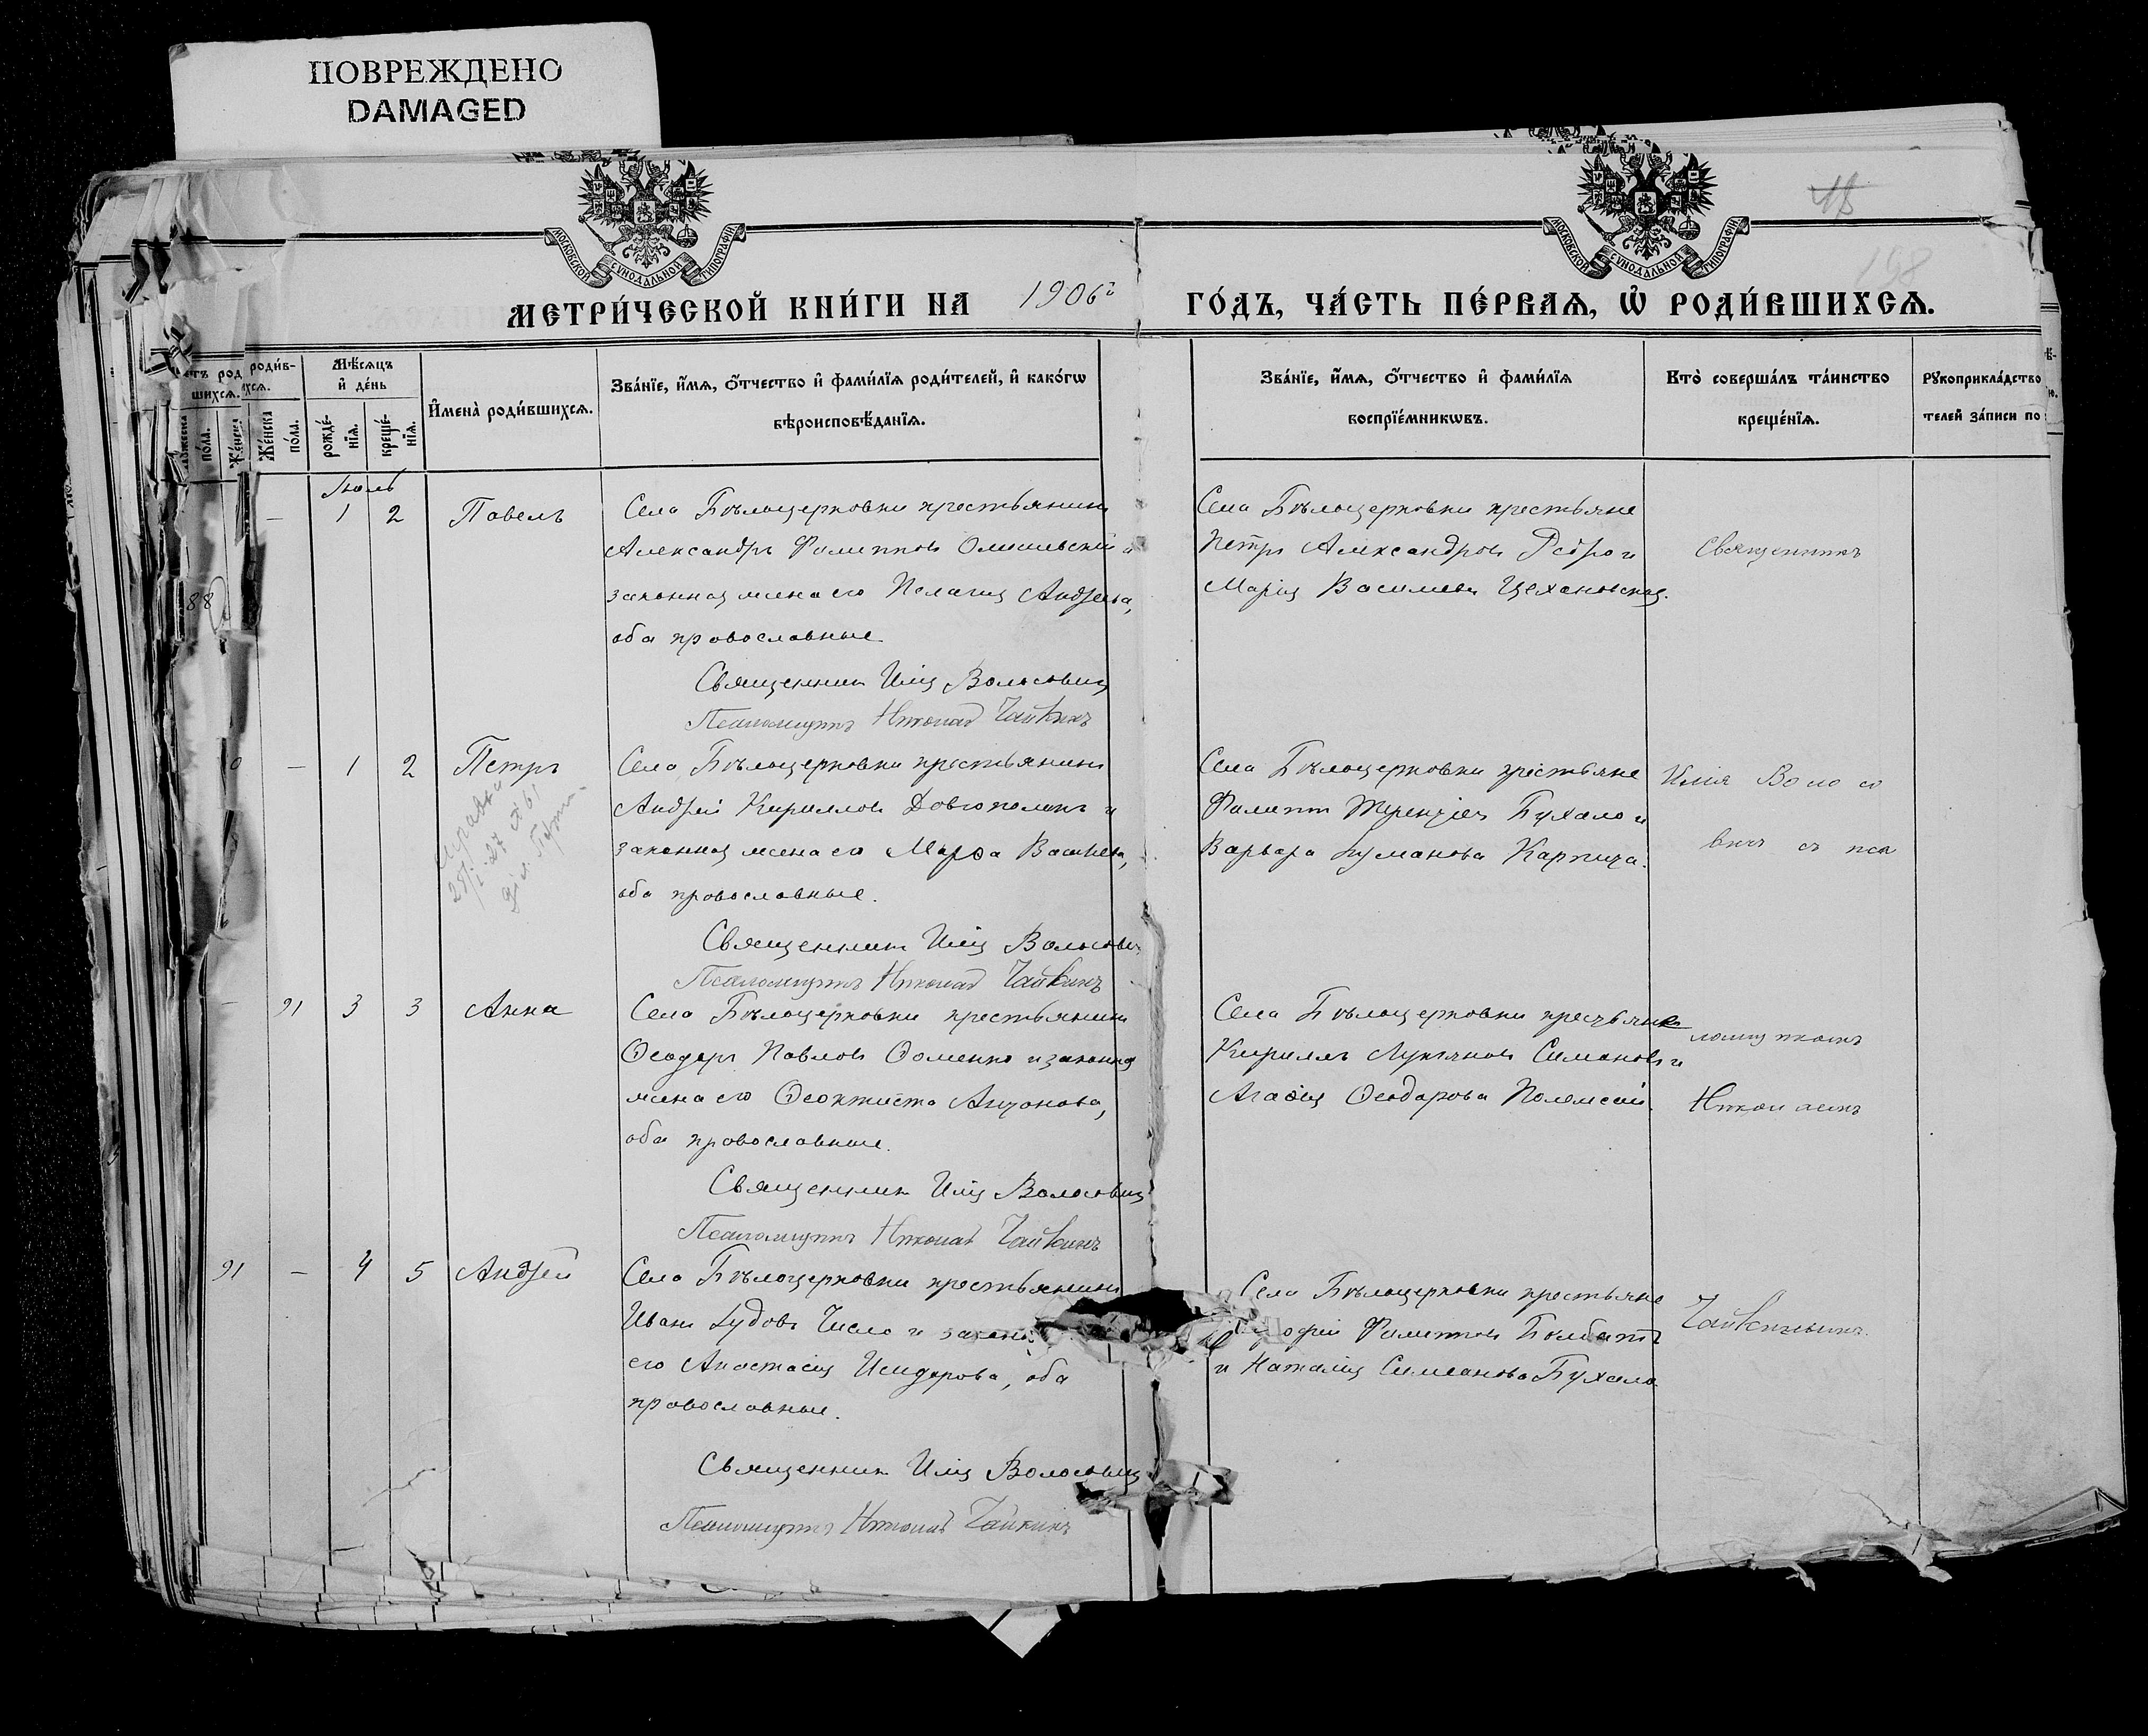 ПОВРЕЖДЕНО
DAMAGED
МОСКОВСКОЙ СУНОДАЛЬНОЙ ТИПОГРАФІИ
МОСКОВСКОЙ СУНОДАЛЬНОЙ ТИПОГРАФІИ
МЕТРИ́ЧЕСКОЙ КНИ́ГИ НА 1906 г
ГО́ДЪ, ЧА́СТЬ ПЕ́РВАѦ, Ѡ҆ РОДИ́ВШИХСѦ.
Мѣ́сяцъ
и҆ де́нь
рожде́-
нїѧ.
креще́-
нїѧ.
Же́нска
по́ла.
И҆мена̀ роди́вшихсѧ.
Зва́нїе, и҆́мѧ, ѻ҆́тчество и҆ фами́лїѧ роди́телей, и҆ како́гѡ
вѣроисповѣ́данїѧ.
Зва́нїе, и҆́мѧ, ѻ҆́тчество и҆ фами́лїѧ
воспрїе́мникѡвъ.
Кто̀ соверша́лъ та́инство
креще́нїѧ.
Рꙋкоприкла́дство
телей за́писи по
Іюль
— 1 2 Павелъ
Села Бѣлоцерковки крестьянинъ
Александръ Филиппов и
законная жена его Пелагия Андреева,
оба православные.
Священник Илия Волосовичъ
Псаломщикъ Николай Чайкинъ
Села Бѣлоцерковки крестьяне
Петръ Александров и
Мария Василиева Цехановская.
Священникъ
88
— 1 2 Петръ
Села Бѣлоцерковки крестьянинъ
Андрей Кириллов Довгополик и
законная жена его Марѳа
оба православные.
Священник Илия Волосович
Псаломщикъ Николай Чайкинъ
Села Бѣлоцерковки крестьяне
Филипп Терентіев Бухало и
Варвара Карпица.
Илія Волосо
вичъ съ пса
91 3 3 Анна
Села Бѣлоцерковки крестьянинъ
Ѳеодоръ Павлов Фоменко и законная
жена его Ѳеоктиста Антонова,
оба православные.
Священник Илия Волосовичъ
Псаломщикъ Николай Чайкинъ
Села Бѣлоцерковки крестьяне
Кириллъ Лукьянов и
Агаѳия Ѳеодорова
ломщикомъ
Николаемъ
91 — 4 5 Андрей
Села Бѣлоцерковки крестьянинъ
Иван Число и законная
его Анастасия Исидорова, оба
православные.
Священник Илия Волосовичъ
Псаломщикъ Николай Чайкинъ
Села Бѣлоцерковки крестьяне
Филиппов Болбатъ
и Наталия Симеонова Бухало
Чайкинымъ.